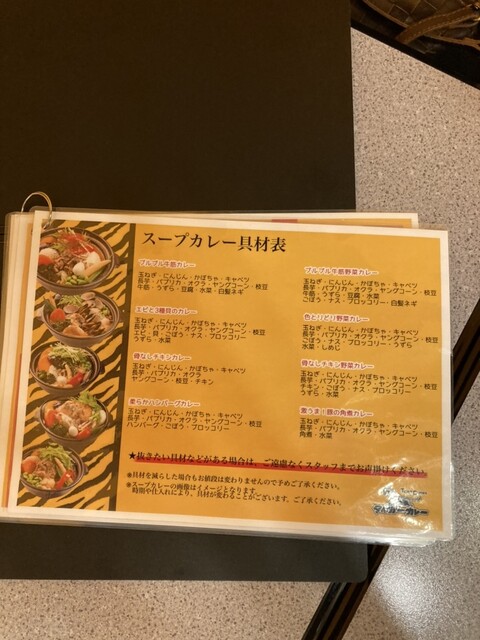 スープカレー具材表
プルプル牛筋カレー
玉ねぎ・にんじん・かぼちゃ・キャベツ
長芋・パプリカ・オクラ・ヤングコーン・枝豆
牛筋・うずら・豆腐・水菜・白髪ネギ
エビと3種貝のカレー
玉ねぎ・にんじん・かぼちゃ・キャベツ
長芋・パプリカ・オクラ・ヤングコーン・枝豆
エビ・貝・ごぼう・ナス・ブロッコリー
うずら・水菜
骨なしチキンカレー
玉ねぎ・にんじん・かぼちゃ・キャベツ
長芋・パプリカ・オクラ
ヤングコーン・枝豆・チキン
柔らかハンバーグカレー
玉ねぎ・にんじん・かぼちゃ・キャベツ
長芋・パプリカ・オクラ・ヤングコーン・枝豆
ハンバーグ・ごぼう・ブロッコリー
プルプル牛筋野菜カレー
玉ねぎ・にんじん・かぼちゃ・キャベツ
長芋・パプリカ・オクラ・ヤングコーン・枝豆
牛筋・うずら・豆腐・水菜
ごぼう・ナス・ブロッコリー・白髪ネギ
色とりどり野菜カレー
玉ねぎ・にんじん・かぼちゃ・キャベツ
長芋・パプリカ・オクラ・ヤングコーン・枝豆
ごぼう・ナス・ブロッコリー・うずら
水菜・しめじ
骨なしチキン野菜カレー
玉ねぎ・にんじん・かぼちゃ・キャベツ
長芋・パプリカ・オクラ・ヤングコーン・枝豆
チキン・ごぼう・ナス・ブロッコリー
うずら・水菜
激うま!豚の角煮カレー
玉ねぎ・にんじん・かぼちゃ・キャベツ
長芋・パプリカ・オクラ・ヤングコーン・枝豆
角煮・水菜
★抜きたい具材などがある場合は、ご遠慮なくスタッフまでお声掛けください
※具材を減らした場合もお値段は変わりませんので予めご了承ください。
※スープカレーの画像はイメージとなります。
時期や仕入れにより、具材が変わることがございます。ご了承ください。